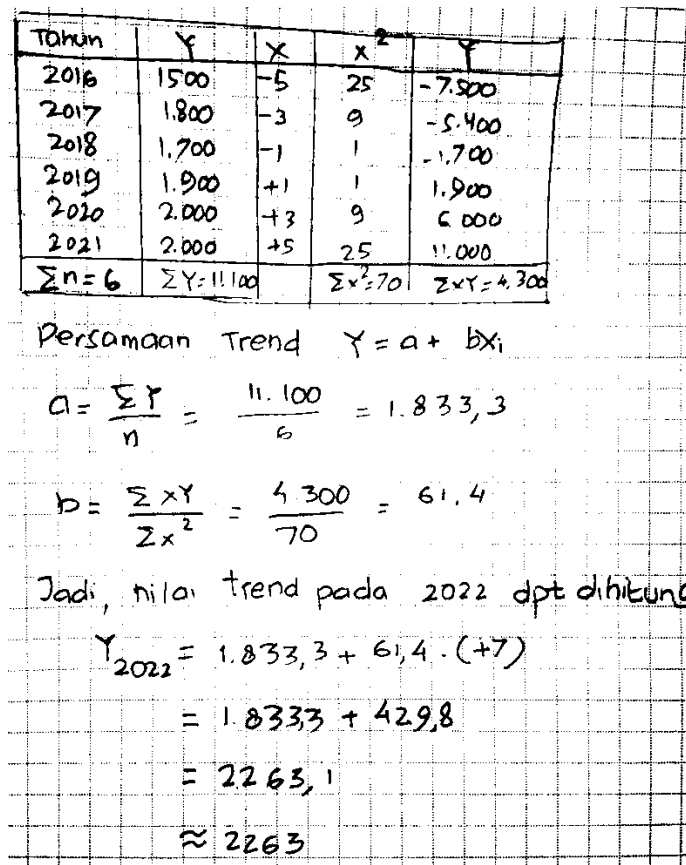 Tahun Y X x² Y
2016 1500 -5 25 -7.500
2017 1.800 -3 9 -5.400
2018 1.700 -1 1 -1.700
2019 1.900 +1 1 1.900
2020 2.000 +3 9 6 000
2021 2.000 +5 25 11.000
Σn=6 ΣY=11.100 Σx²=70 ΣxY=4.300
Persamaan Trend Y = a + bXi
a = ΣY/n = 11.100/6 = 1.833,3
b = ΣxY/Σx² = 4.300/70 = 61,4
Jadi, nilai trend pada 2022 dpt dihitung
Y2022 = 1.833,3 + 61,4 . (+7)
= 1.833,3 + 429,8
= 2263,1
≈ 2263